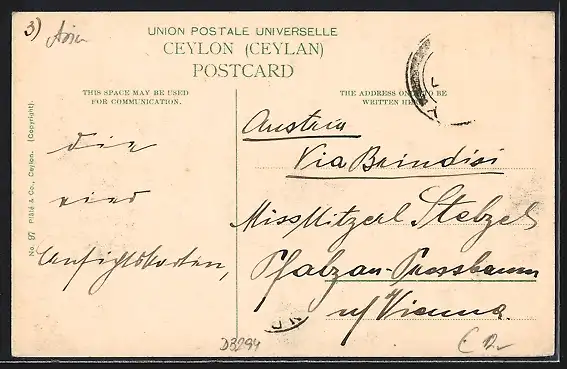 3) Asien
UNION POSTALE UNIVERSELLE
CEYLON (CEYLAN)
POSTCARD
THIS SPACE MAY BE USED
FOR COMMUNICATION.
THE ADDRESS ONLY TO BE
WRITTEN HERE
No. 97 Plâté & Co., Ceylon. (Copyright).
die
Ansichtskarten,
Austria
Via Brindisi
Miss Mitzerl Stelzel
Pfalzau-Pressbaum
n/Vienna.
D3294